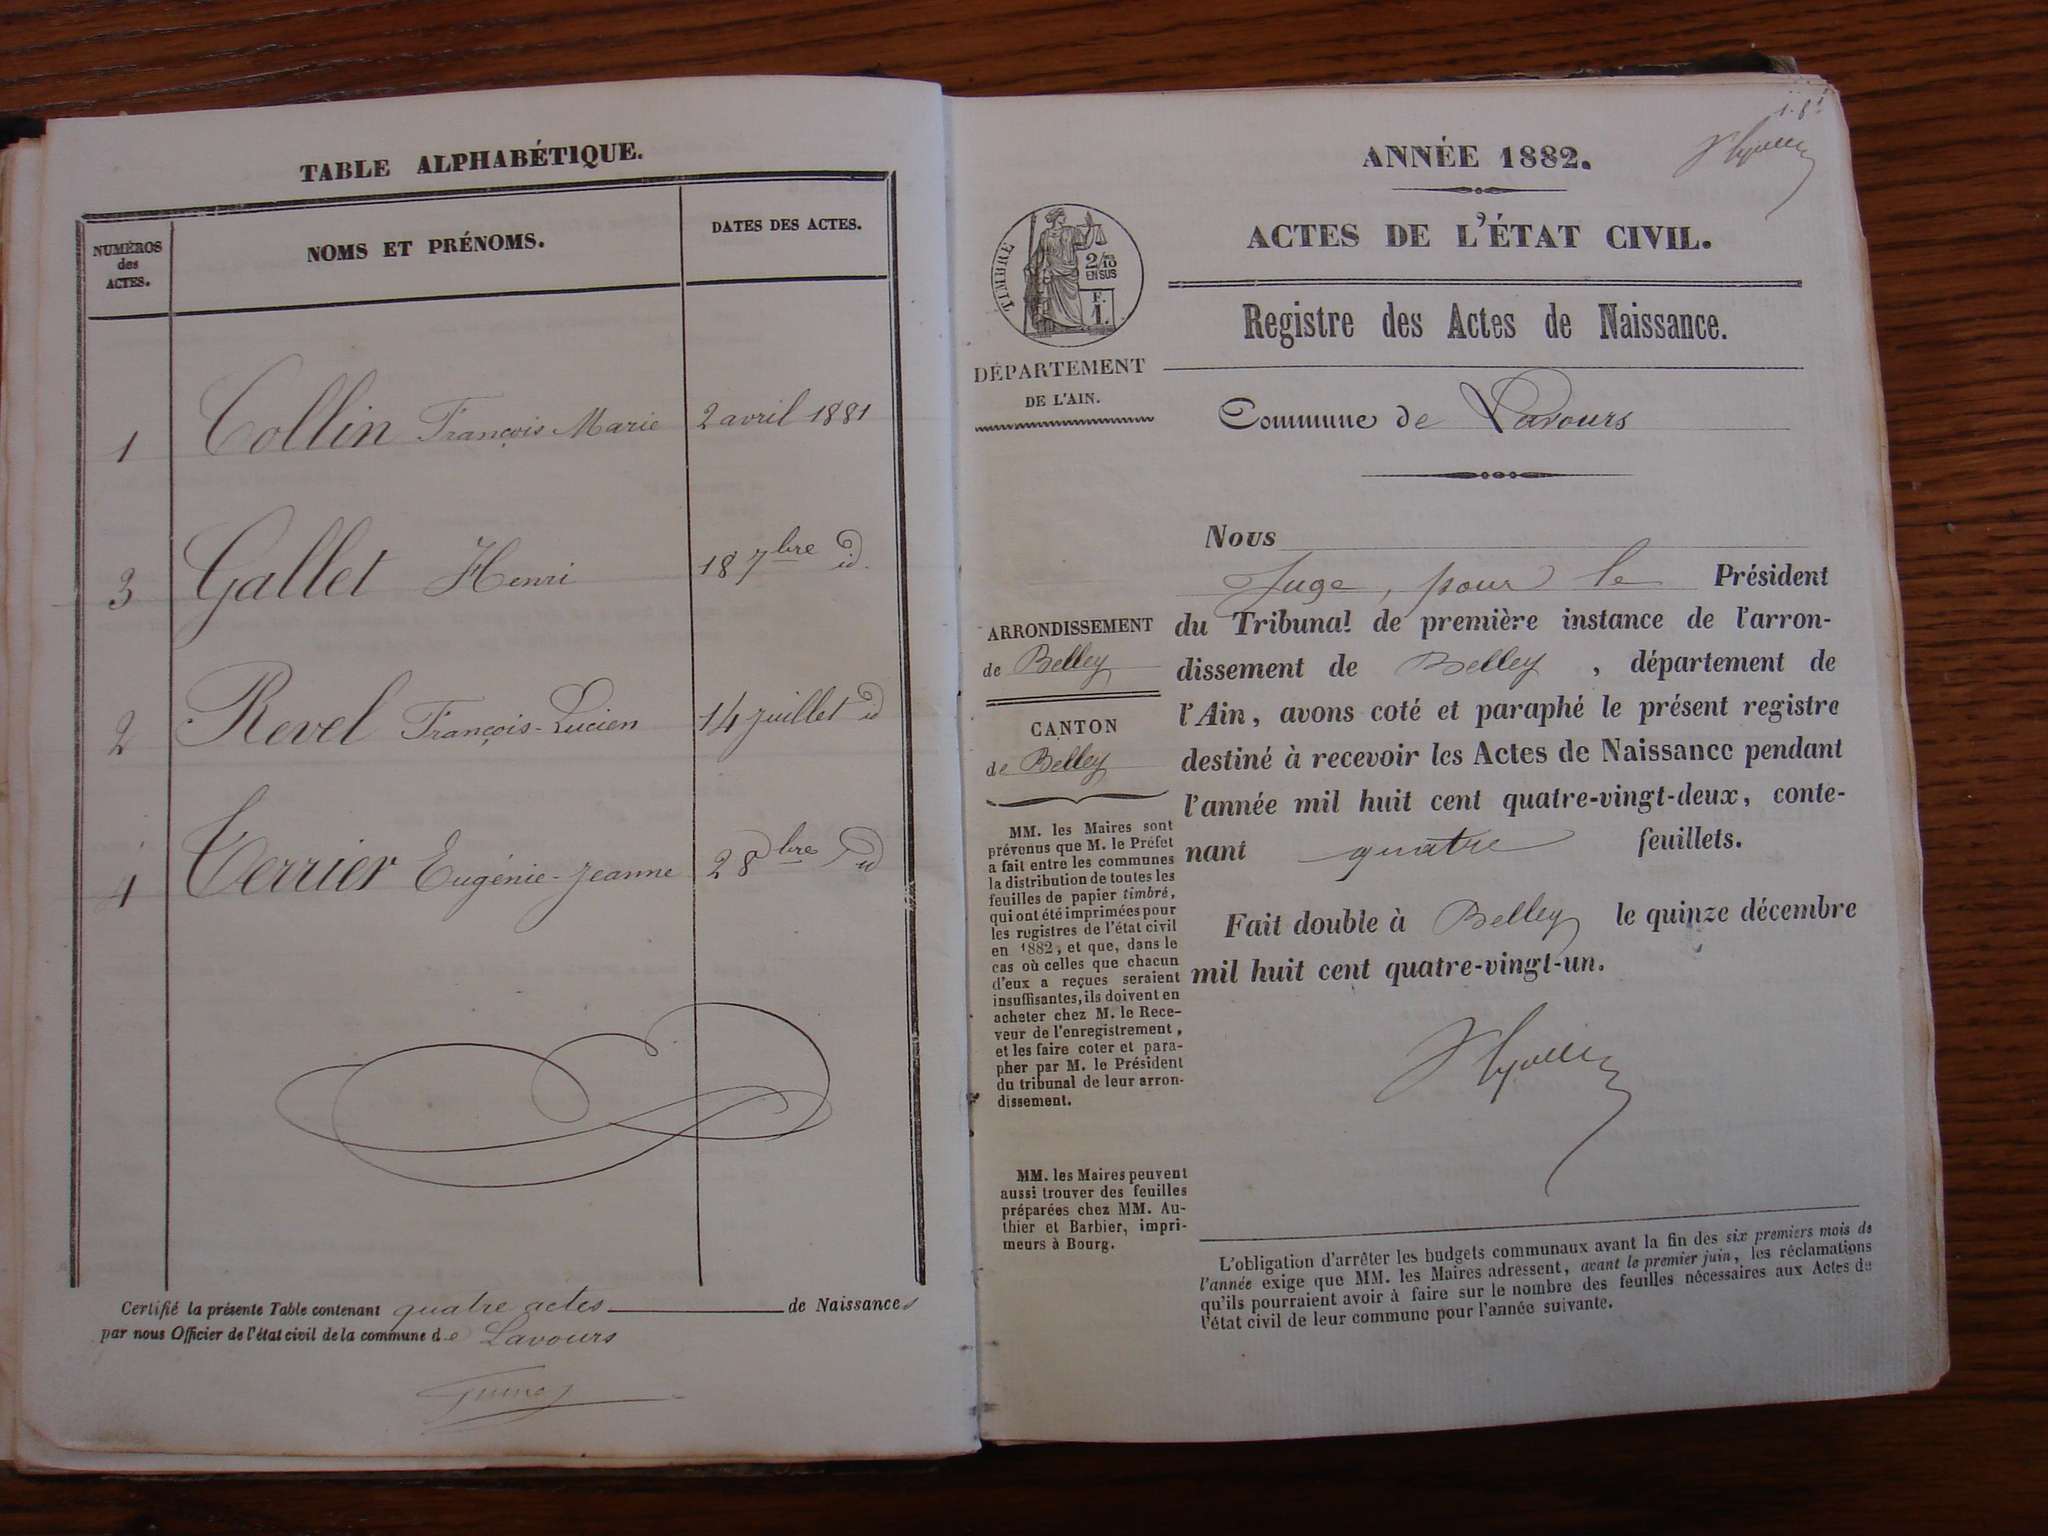 TABLE ALPHABÉTIQUE.
NUMÉROS
des
ACTES.
NOMS ET PRÉNOMS.
DATES DES ACTES.
1 Collin François Marie 2 avril 1881
3 Gallet Henri 18 7bre id.
2 Revel François-Lucien 14 juillet id
4 Terrier Eugénie-Jeanne 28 bre id
Certifié la présente Table contenant quatre actes de Naissances
par nous Officier de l'état civil de la commune de Lavours
ANNÉE 1882.
ACTES DE L'ÉTAT CIVIL.
TIMBRE
2/10
EN SUS
F.
1.
Registre des Actes de Naissance.
DÉPARTEMENT
DE L'AIN.
Commune de Lavours
Nous
Juge, pour le Président
du Tribunal de première instance de l'arron-
dissement de Belley, département de
l'Ain, avons coté et paraphé le présent registre
destiné à recevoir les Actes de Naissance pendant
l'année mil huit cent quatre-vingt-deux, conte-
nant quatre feuillets.
Fait double à Belley le quinze décembre
mil huit cent quatre-vingt-un.
ARRONDISSEMENT
de Belley
CANTON
de Belley
MM. les Maires sont
prévenus que M. le Préfet
a fait entre les communes
la distribution de toutes les
feuilles de papier timbré,
qui ont été imprimées pour
les registres de l'état civil
en 1882, et que, dans le
cas où celles que chacun
d'eux a reçues seraient
insuffisantes, ils doivent en
acheter chez M. le Rece-
veur de l'enregistrement,
et les faire coter et para-
pher par M. le Président
du tribunal de leur arron-
dissement.
MM. les Maires peuvent
aussi trouver des feuilles
préparées chez MM. Au-
thier et Barbier, impri-
meurs à Bourg.
L'obligation d'arrêter les budgets communaux avant la fin des six premiers mois de
l'année exige que MM. les Maires adressent, avant le premier juin, les réclamations
qu'ils pourraient avoir à faire sur le nombre des feuilles nécessaires aux Actes de
l'état civil de leur commune pour l'année suivante.